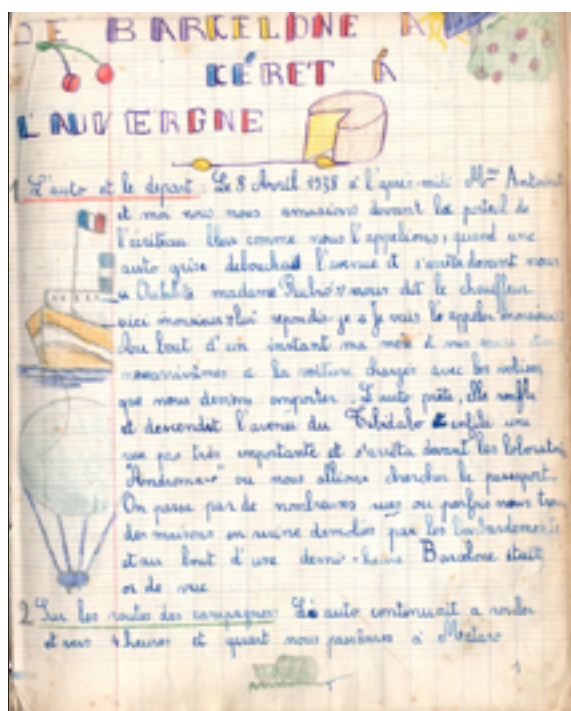 DE BARCELONE A
CÉRET À
L'AUVERGNE
1 L'auto et le depart : Le 8 Avril 1938 a l'après-midi Mme
et moi nous nous amusions devant le portail de
l'écriteau bleu comme nous l'appelions, quand une
auto grise deboucha l'avenue et s'arrêta devant nous
madame Rubió nous dit le chauffeur
ici monsieur lui repondis-je « Je vais l'appeler monsieur
bout d'un instant ma mère et mes
nous arrivâmes a la voiture chargés avec les valises
que nous devions emporter. L'auto prête, elle
et descendit l'avenue du Tibidabo enfila une
rue pas très importante et s'arrêta devant les
ou nous allions chercher le passeport.
On passa par de nombreuses rues ou parfois nous
des maisons en ruine demolies par les bombardements
et au bout d'une demi-heure Barcelone était
or de vue
2 Sur les routes des campagnes : auto continuait a rouler
et vers 4 heures et quart nous passâmes a Mataro
1